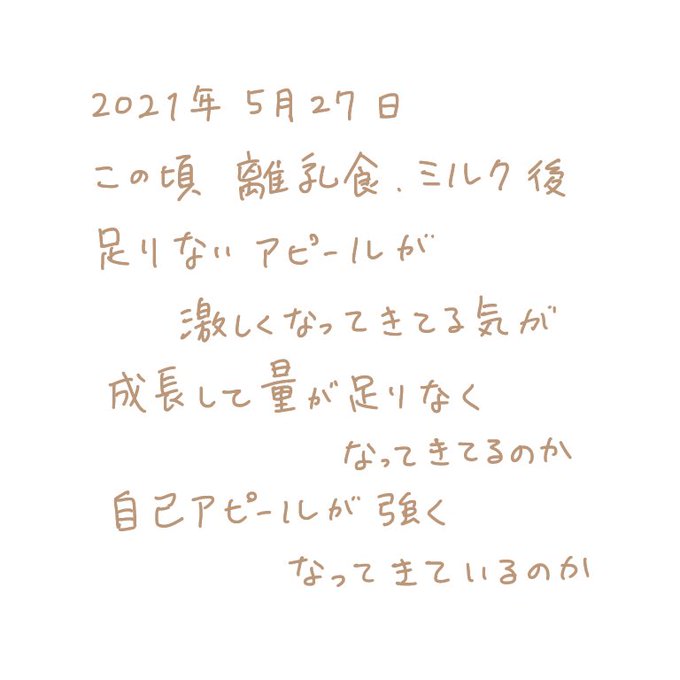 2021年 5月27日
この頃 離乳食、ミルク後
足りない アピールが
激しくなってきてる気が
成長して量が足りなく
なってきてるのか
自己アピールが強く
なってきているのか